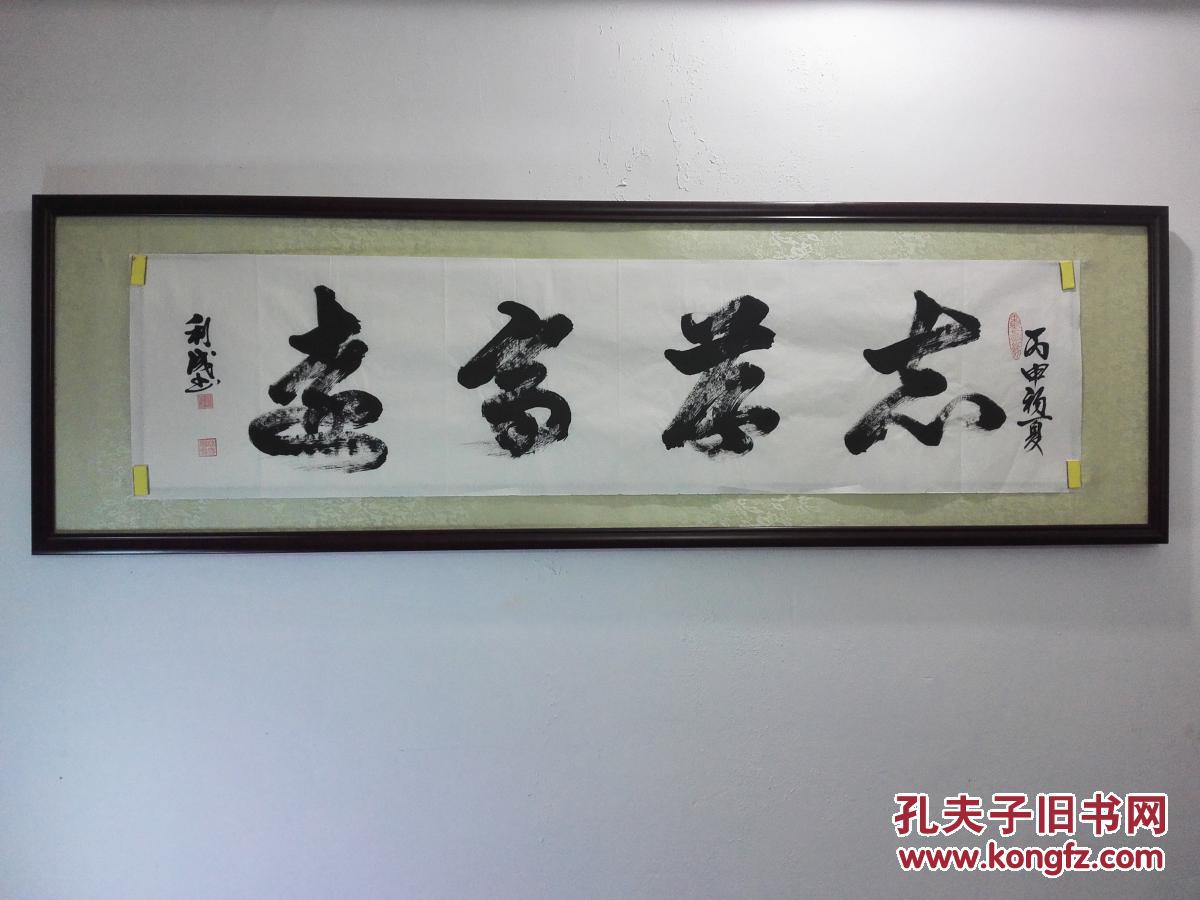 丙申初夏
志存高遠
利成书
孔夫子旧书网
www.kongfz.com